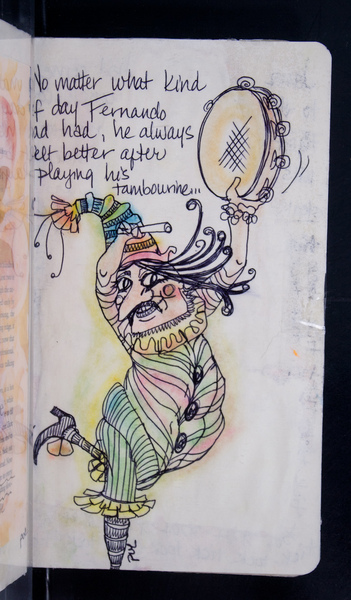 No matter what kind
f day Fernando
ad had, he always
elt better after
playing his
tambourine...